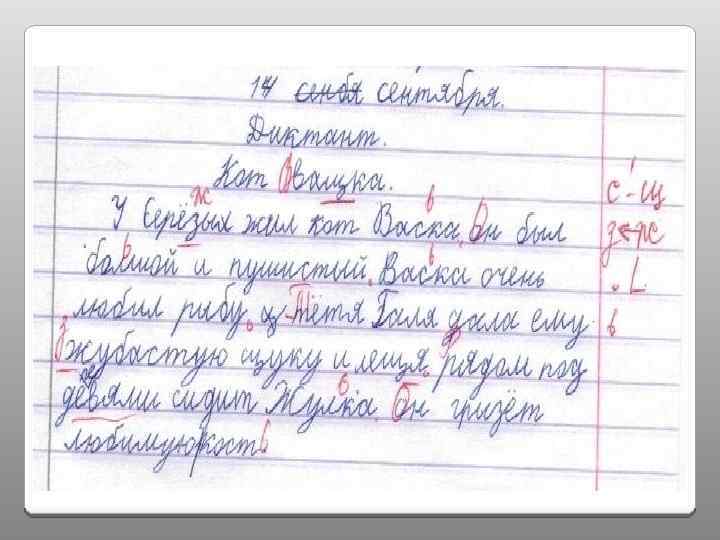 14 сенбя сентября.
Диктант.
Кот Ващка.
с - щ
У Серёзы жил кот Васка. Он был
з ж
болшой и пушистий. Васка очень
. L
любил рибу. Тётя Галя дала ему
в
жубастую щуку и леща. рядом под
девями сидит Жулка. Он гризёт
любимую кост